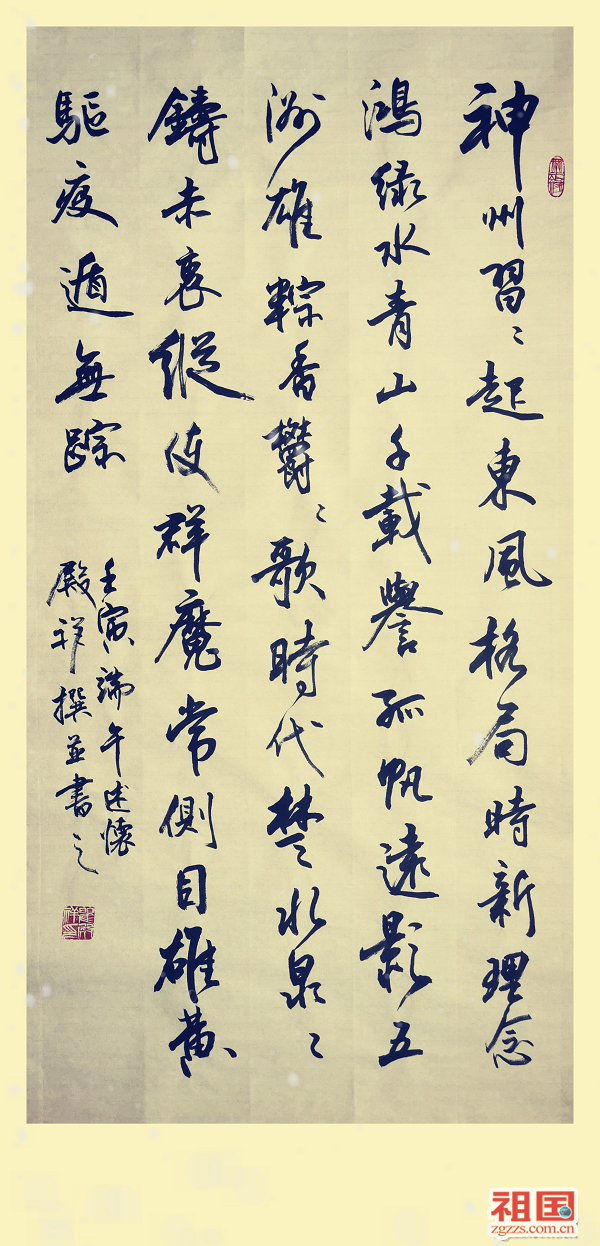 神州習〻起東風格局時新理念
鴻绿水青山千載譽孤帆遠影五
洲雄粽香鬱〻歌時代楚水泉〻
鑄赤衷縱使群魔常側目雄黄
驅疫遁無踪
壬寅端午述懷
殿祥撰並書之
祖国
zgzzs.com.cn